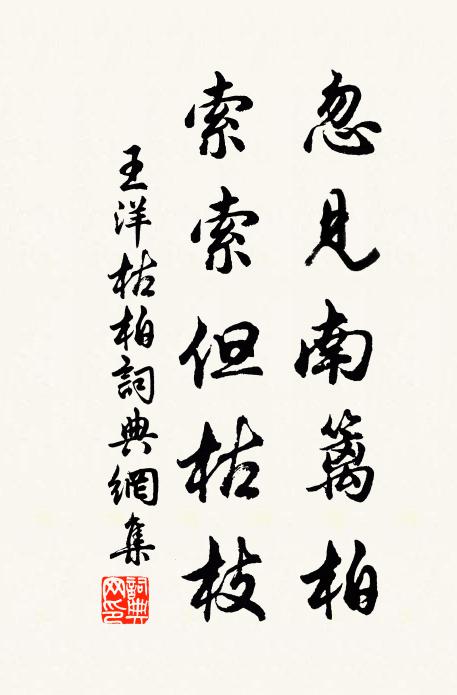 忽見南籬柏
索索但枯枝
王洋枯柏詞典網集
詞典網印